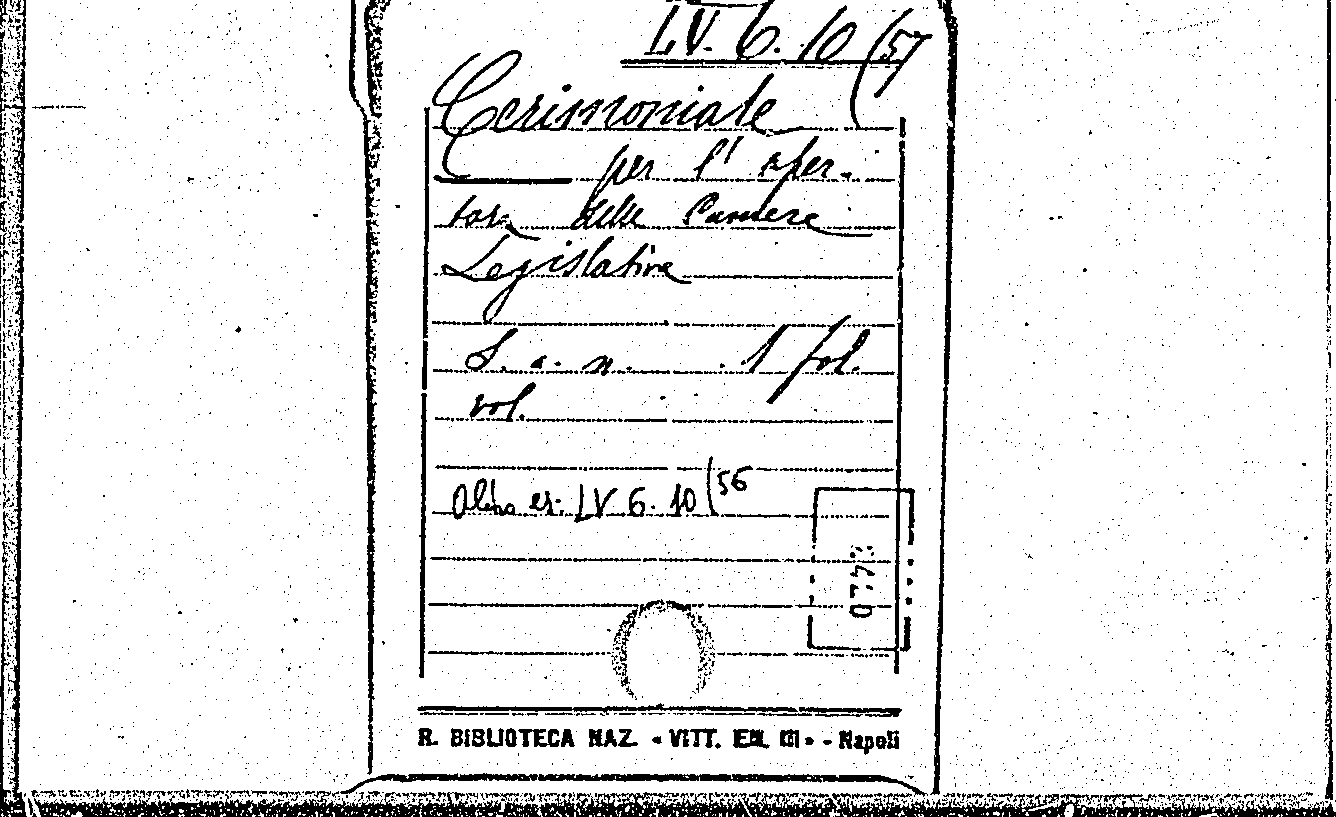 LV. 6. 10 (57
Cerimoniale
per l' aper-
tura delle Camere
Legislative
S. a. n. 1 fol.
vol.
Altro es. LV 6. 10 (56
R. BIBLIOTECA NAZ. « VITT. EM. III » - Napoli